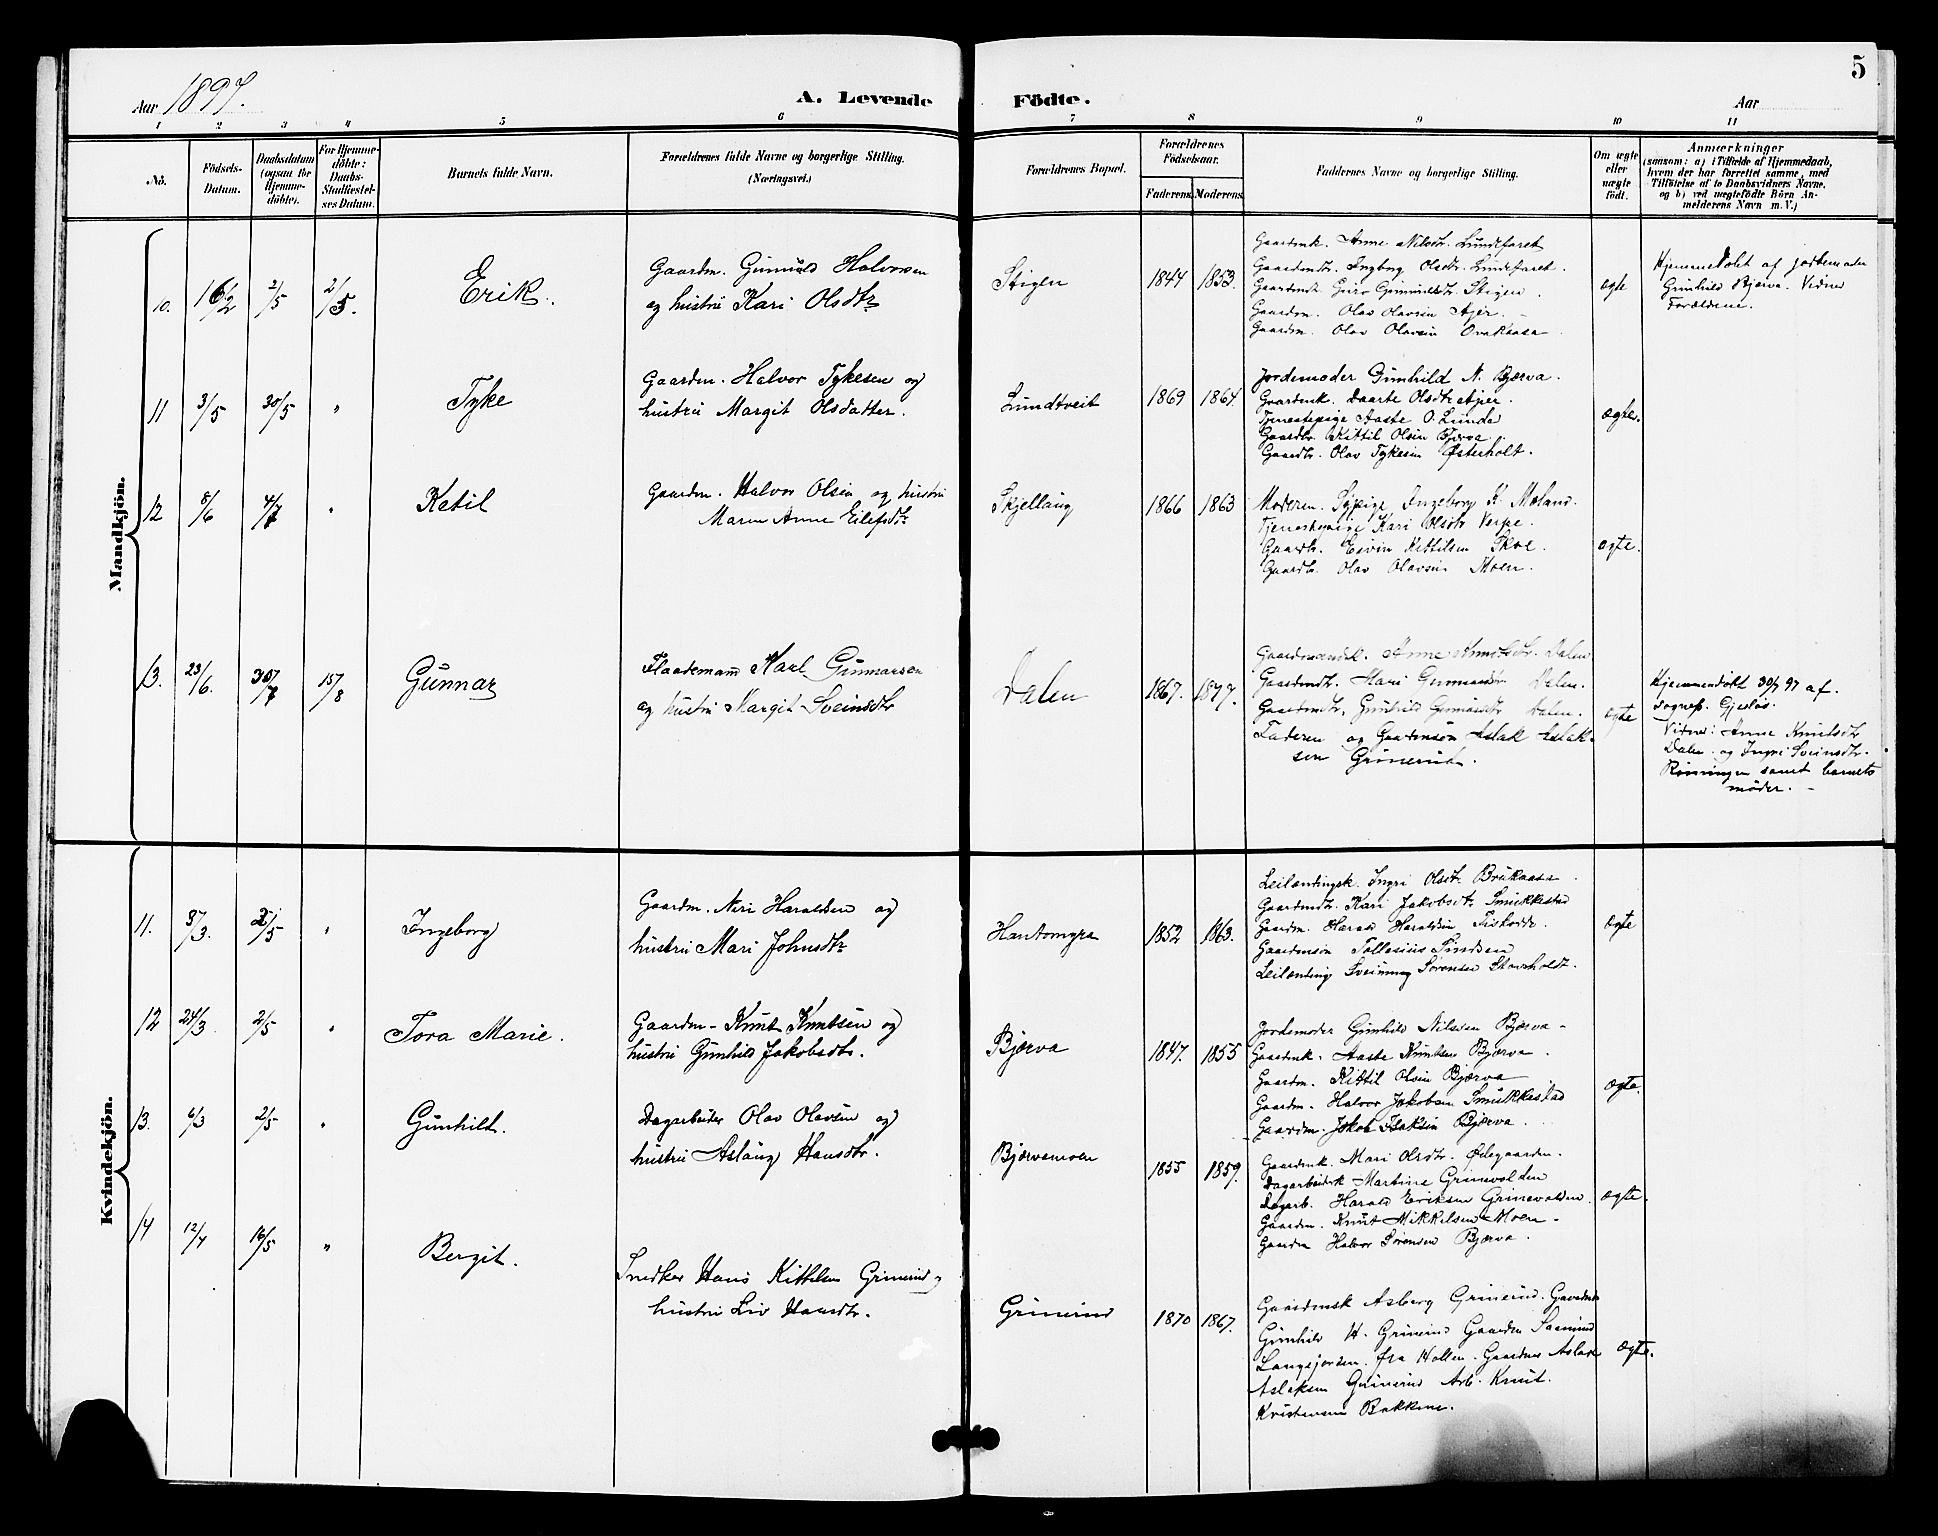 Aar 1897.
A. Levende Födte.
Aar
5
1 2 3 4 5 6 7 8 9 10 11
No.
Födsels-Datum.
Daabsdatum (ogsaa for Hjemmedöbte).
For Hjemmedöbte: Daabs-Stadfæstelses Datum.
Barnets fulde Navn.
Forældrenes fulde Navne og borgerlige Stilling. (Næringsvei.)
Forældrenes Bopæl.
Forældrenes Födselsaar.
Faderens. Moderens.
Faddernes Navne og borgerlige Stilling.
Om ægte eller uægte födt.
Anmærkninger
(saasom: a) i Tilfælde af Hjemmedaab,
hvem der har forrettet samme, med
Tilföielse af to Daabsvidners Navne,
og b) ved uægtefödte Börn Anmelderens Navn m. V.)
Mandkjön.
10. 2/5 2/5. Erik.
Gaardm. Gunuld Halvorsen
og hustru Kari Olsdtr
Stigen 1844 1853.
Gaardmk. Anne Nilsdtr. Lundefaret
Gaardmdtr. Ingborg Olsdtr. Lundefaret.
Gaardmdtr. Guro Gunuldsdtr. Stigen.
Gaardm. Olav Olavsen Ajer.
Gaardm. Olav Olavsen
ægte
Hjemmedøbt af jordemoder
Gunhild Bjerva. Vidner
Forældrene.
11 3/5 30/5 " Tyke
Gaardm. Halvor Tykesen og
hustru Margit Olsdatter.
Lundtveit 1869 1864.
Jordemoder Gunhild N. Bjerva.
Gaardmk. Daarte Olsdtr Ajer.
Tjenestepige Aaste O. Lunde
Gaardbr. Kittil Olsen
Gaardbr. Olav Tykesen Østerholt.
ægte.
12 8/6 4/7 " Ketil
Gaardm. Halvor Olsen og hustru
Maren Anne Eilefsdtr
Skjellaug 1866 1863
Moderen. Sypige Ingeborg K. Mæland.
Tjenestepige Kari Olsdtr Verpe.
Gaardb. Eivin Kittilsen Skoe.
Gaardb. Olav Olavsen Moen.
ægte.
13. 23/6. 30/7 15/8 Gunnar
Flaademand Karl Gunnarsen
og hustru Margit Sveinsdtr
Dalen 1867.
Gaardmandsk. Anne Knutsdtr. Dalen
Gaardmdtr. Mari Dalen.
Gaardmdtr. Gunhild Dalen.
Faderen og Gaardmsøn Aslak Aslaksen
Grinerud.
ægte
Hjemmendøbt 30/7 97 af.
sognep. Gjesløs.
Vidner: Anne Knutsdtr
Dalen og Ingri Sveinsdtr.
Rønningen samt barnets
møder.
Kvindekjön.
11. Ingeborg
Gaardm. Neri Haraldsen og
hustru Mari Johnsdtr
Hantomyra 1852 1863.
Leilændingsk. Ingri Olsdtr Brukaasa
Gaardmdtr. Kari Jakobsdtr Smukkestad
Gaardm. Harald Haraldsen
Gaardmsøn Tollesius
Leilænding Sveinung Sørensen
ægte
12 24/3. 2/5 " Tora Marie.
Gaardm. Knut Knutsen og
hustru Gunhild Jakobsdtr.
Bjerva 1847. 1855
Jordemoder Gunhild Nilsen Bjerva
Gaardmk. Aaste Knutsen Bjerva.
Gaardm. Kittil Olsen Bjerva
Gaardm. Halvor Jakobsen Smukkestad
Gaardm. Jakob Isaksen Bjerva.
ægte.
13. 6/3 2/5 " Gunhilt.
Dagarbeider Olav Olavsen og
hustru Aslaug Hansdtr.
Bjervamoen 1855 1859.
Gaardmk. Mari Olsdtr. Ødegaarden.
Dagarbeidersk Martine Grinevolden
Dagarb. Harald Eriksen Grinevolden.
Gaardm. Knut Mikkelsen Moen.
Gaardm Halvor Sørensen Bjerva.
ægte.
14 12/4 16/5 " Bergit.
Snedker Hans Kittelsen Grinerud og
hustru Liv Hansdtr.
Grinerud 1870 1867.
Gaardmsk Asberg Grinerud.
Gunhild H. Grinerud Gaardm
fra Hollen. Gaardm Aslak
Aslaksen Grinerud Arb. Knut
Kristensen Bakkene.
ægte.